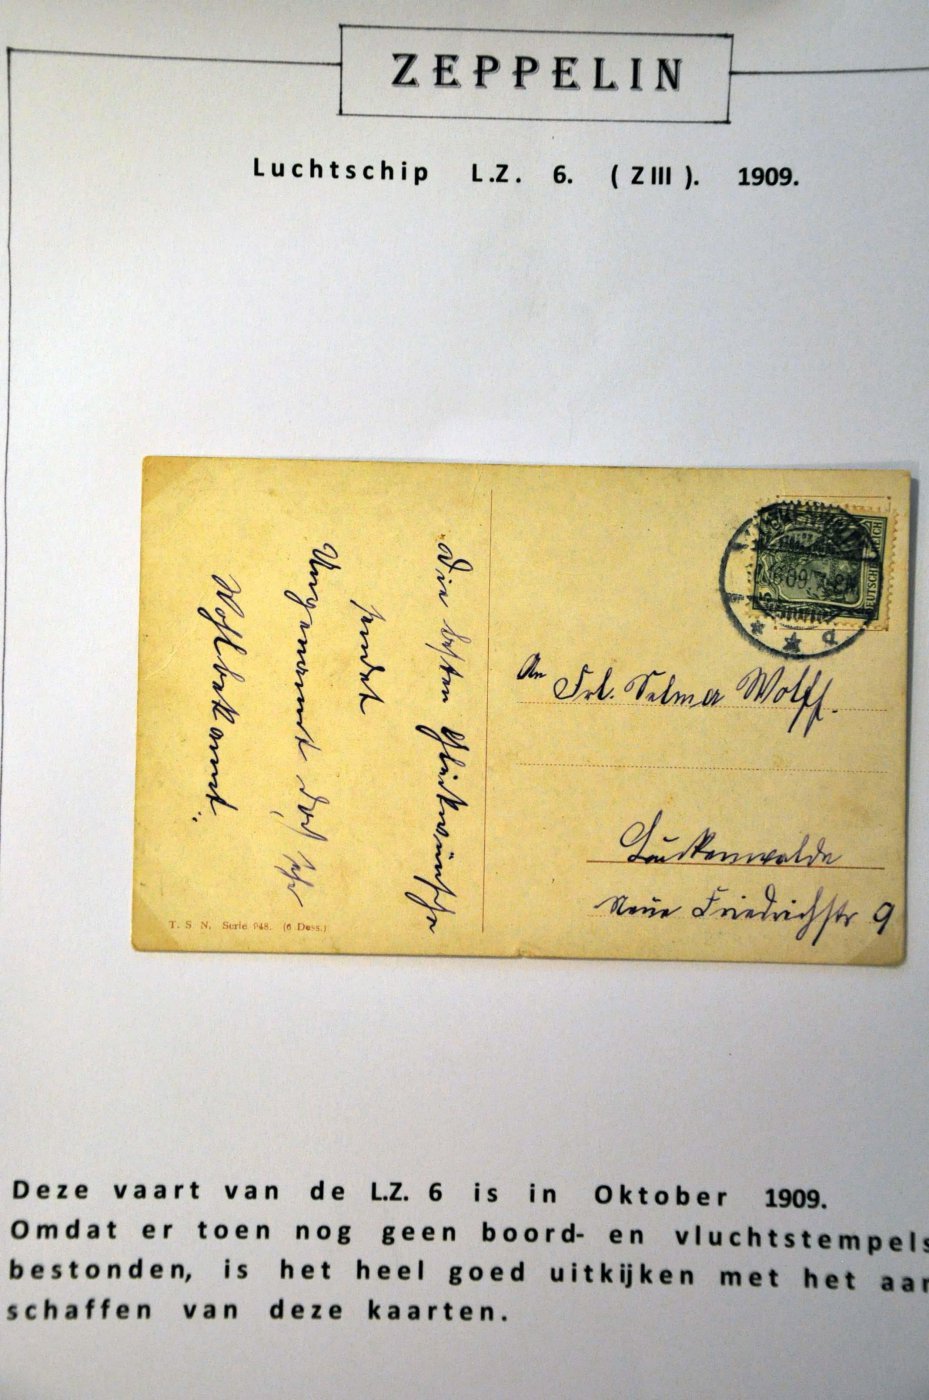 ZEPPELIN
Luchtschip L.Z. 6. (ZIII). 1909.
Die besten Glückwünsche
sendet
Ungenannt doch sehr
Wohlbekannt.
An Frl. Selma Wolff.
Luckenwalde
Neue Friedrichstr 9
T. S. N. Serie 948. (6 Dess.)
LUCKENWALDE
DEUTSCHES REICH
Deze vaart van de L.Z. 6 is in Oktober 1909.
Omdat er toen nog geen boord- en vluchtstempels
bestonden, is het heel goed uitkijken met het aan
schaffen van deze kaarten.